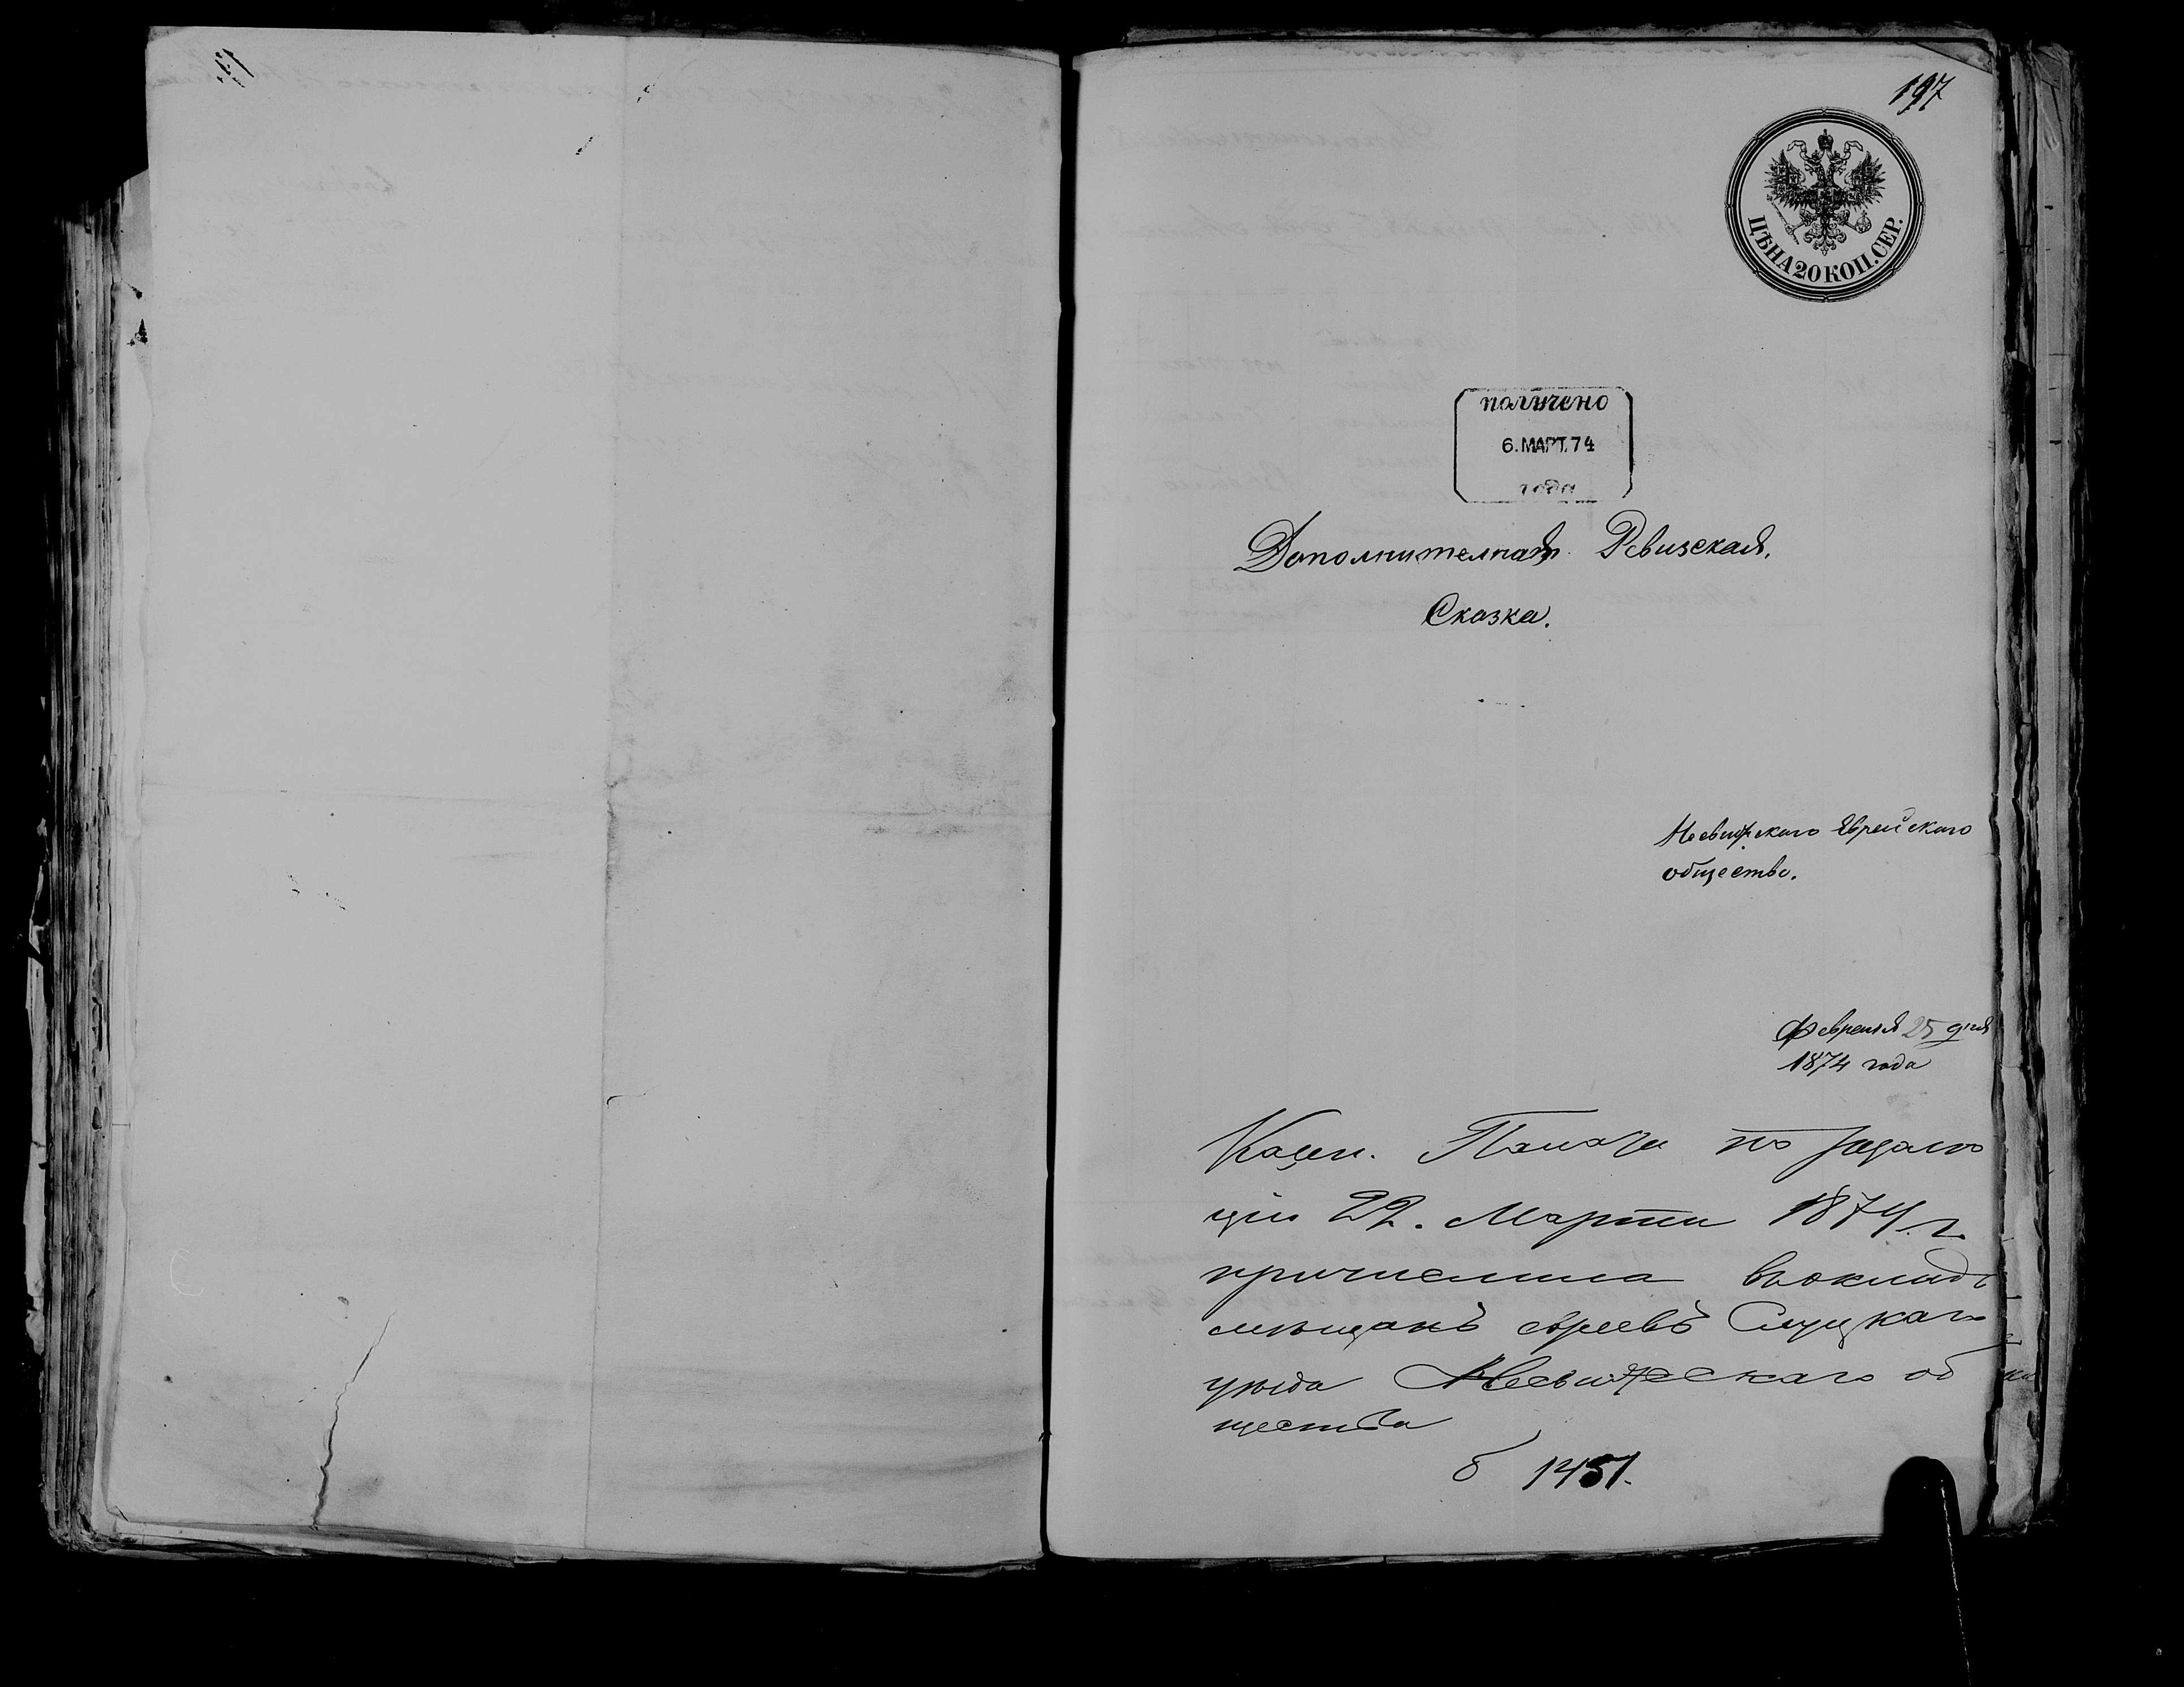 197
ЦѢНА 20 КОП. СЕР.
получено
6. МАРТ. 74
года
Дополнителная Ревизская.
Сказка.
Несвижскаго Еврейскаго
общества.
Февраля 25 дня
1874 года
Казен. Палаты по
ціи 22. Марта 1874 г.
причислена въ окладъ
мѣщанъ евреевъ Слуцкаго
уѣзда Несвижескаго об
щества
1451.